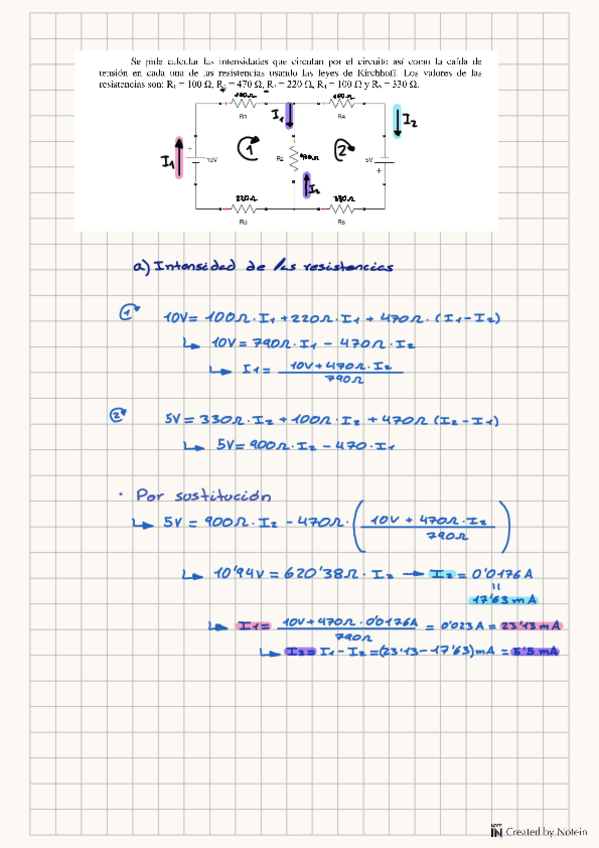 Se pide calcular las intensidades que circulan por el circuito así como la caída de
tensión en cada una de las resistencias usando las leyes de Kirchhoff. Los valores de las
resistencias son: R₁ = 100 Ω, R₂ = 470 Ω, R₃ = 220 Ω, R₄ = 100 Ω y R₅ = 330 Ω.
100Ω 100Ω
R1 I1 R4 I2
I1 10V 1 R2 470Ω 2 5V
I2
220Ω 330Ω
R3 R5
a) Intensidad de las resistencias
1 10V = 100Ω · I1 + 220Ω · I1 + 470Ω · (I1 - I2)
↳ 10V = 790Ω · I1 - 470Ω · I2
↳ I1 = 10V + 470Ω · I2 / 790Ω
2 5V = 330Ω · I2 + 100Ω · I2 + 470Ω (I2 - I1)
↳ 5V = 900Ω · I2 - 470 · I1
· Por sustitución
↳ 5V = 900Ω · I2 - 470Ω · (10V + 470Ω · I2 / 790Ω)
↳ 10'94V = 620'38Ω · I2 → I2 = 0'0176A
=
17'63 mA
↳ I1 = 10V + 470Ω · 0'0176A / 790Ω = 0'023A = 23'13 mA
↳ I3 = I1 - I2 = (23'13 - 17'63) mA = 5'5 mA
NOTE IN Created by Notein